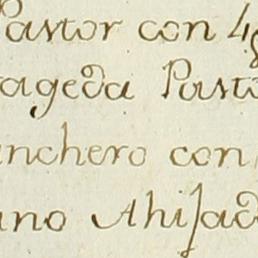 Pastor con 48
ageda Pasto
nchero con
ano Ahijad